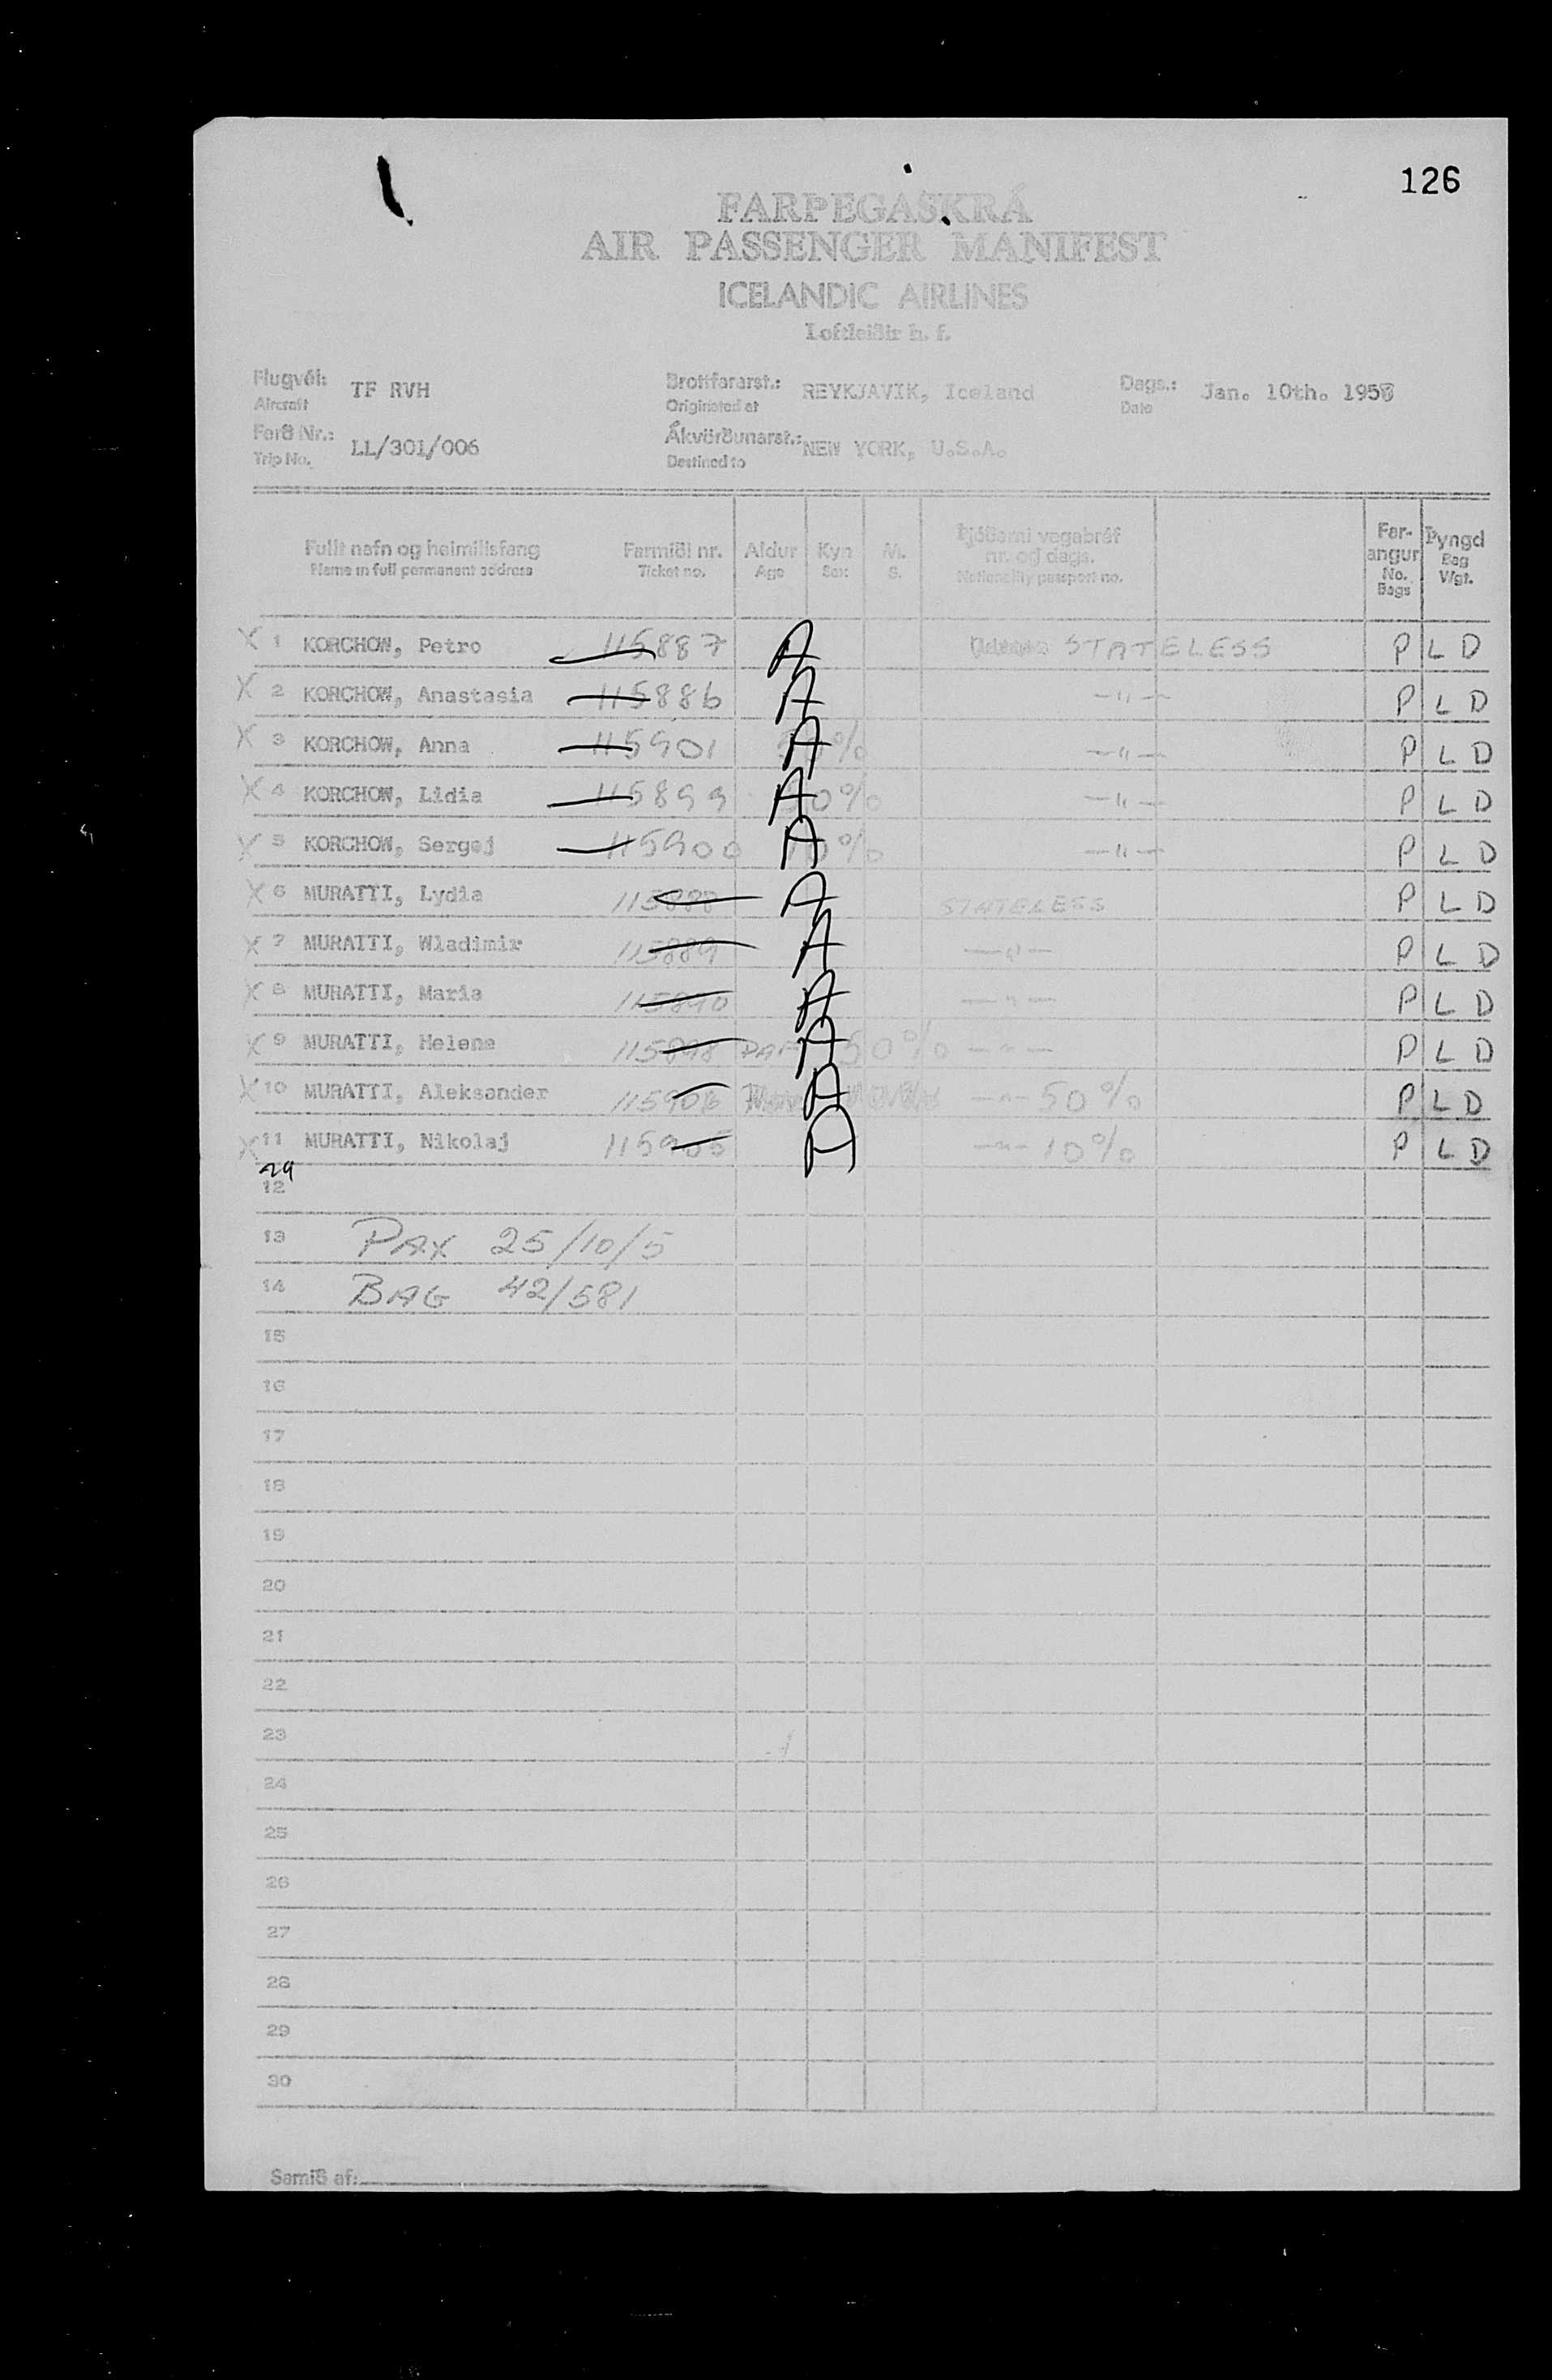 126
FARÞEGASKRÁ
AIR PASSENGER MANIFEST
ICELANDIC AIRLINES
Loftleiðir h. f.
Flugvél: TF RVH Brottfararst.: REYKJAVIK, Iceland Dags.: Jan. 10th. 1958
Aircraft Originated at Date
Ferð Nr.: LL/301/006 Ákvörðunarst.: NEW YORK, U.S.A.
Trip No. Destined to
Fullt nafn og heimilisfang Farmiði nr. Aldur Kyn M. Þjóðerni vegabréf Far- Þyngd
Name in full permanent address Ticket no. Age Sex S. nr. og dags. angur Bag
Nationality passport no. No. Wgt.
Bags
X 1 KORCHOW, Petro 115887 A STATELESS P L D
X 2 KORCHOW, Anastasia 115886 A —"— P L D
X 3 KORCHOW, Anna 115901 A 50% —"— P L D
X 4 KORCHOW, Lidia 115899 A 50% —"— P L D
X 5 KORCHOW, Sergej 115900 A 10% —"— P L D
X 6 MURATTI, Lydia 115888 A STATELESS P L D
X 7 MURATTI, Wladimir 115889 A —"— P L D
X 8 MURATTI, Maria 115890 A —"— P L D
X 9 MURATTI, Helene 115898 A 50% —"— P L D
X 10 MURATTI, Aleksander 115906 A —"— 50% P L D
X 11 MURATTI, Nikolaj 115905 —"— 10% P L D
29
12
13 PAX 25/10/5
14 BAG 42/581
15
16
17
18
19
20
21
22
23
24
25
26
27
28
29
30
Samið af: